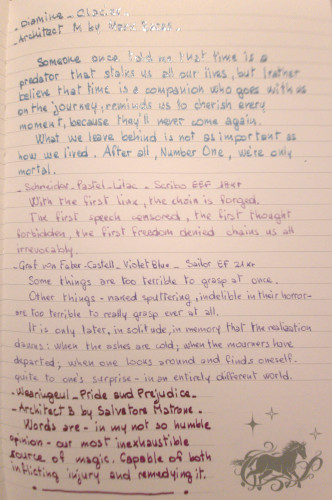 - Diamine - Glacier
- Architect M by
Someone once told me that time is a
predator that stalks us all our lives, but I rather
believe that time is a companion who goes with us
on the journey, reminds us to cherish every
moment, because they'll never come again.
What we leave behind is not as important as
how we lived. After all, Number One, we're only
mortal.
- Schneider - Pastel - Lilac - Scribo EEF
With the first link, the chain is forged.
The first speech censored, the first thought
forbidden, the first freedom denied chains us all
irrevocably.
- Graf von Faber-Castell - Violet Blue - Sailor EF 21kt
Some things are too terrible to grasp at once.
Other things - naked, sputtering, indelible in their horror -
are too terrible to really grasp ever at all.
It is only later, in solitude, in memory that the realisation
dawns: when the ashes are cold; when the mourners have
departed; when one looks around and finds oneself -
quite to one's surprise - in an entirely different world.
- Wearingeul - Pride and Prejudice -
- Architect B by Salvatore Matrone -
Words are - in my not so humble
opinion - our most inexhaustible
source of magic. Capable of both
inflicting injury and remedying it.